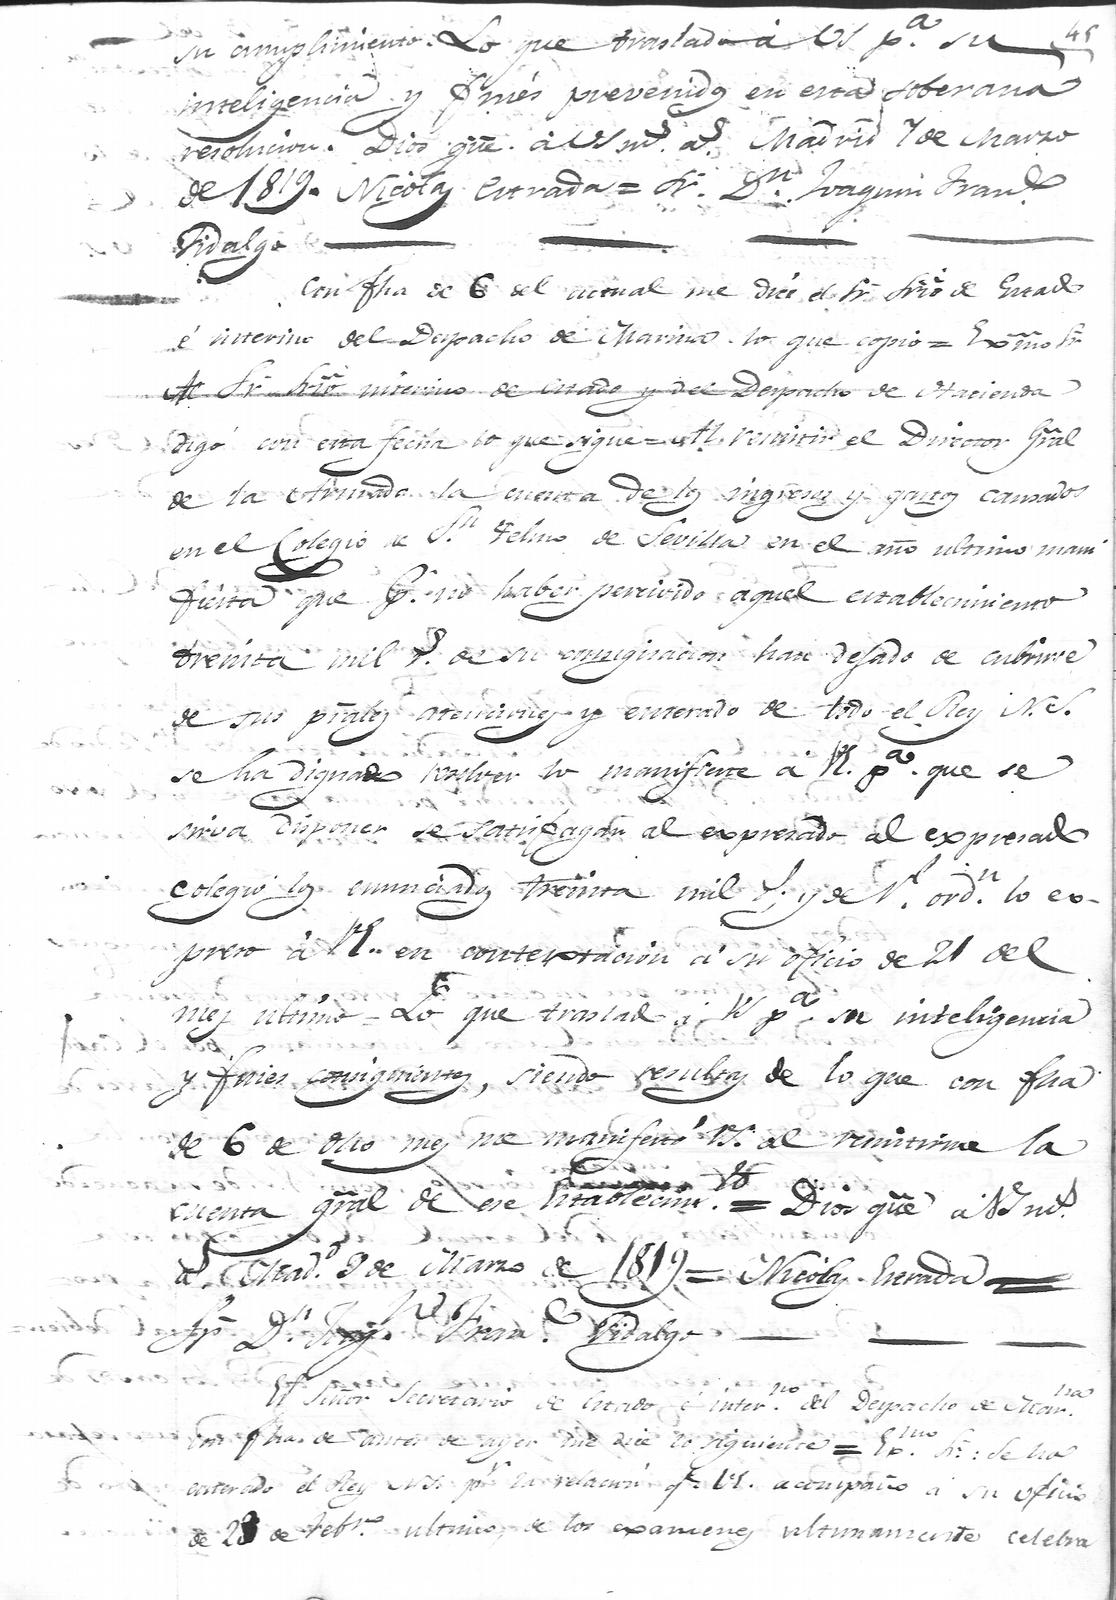 45
su cumplimiento. Lo que traslado á VS pª. su
inteligencia y fines prevenidos en esta soberana
resolucion. Dios gue. á VS ms. as. Madrid 7 de Marzo
de 1819. Nicolas Estrada = Sr. Dn. Joaquin Franco.
Fidalgo
Con fha de 6 del actual me dice el Sr Srio de Estado
é interino del Despacho de Marina lo que copio = Exmo Sr
Al Sr Srio interino de estado y del Despacho de Hacienda
digo con esta fecha lo que sigue = Al remitir el Director Gral
de la Armada la cuenta de los ingresos y gastos causados
en el Colegio de Sn. Telmo de Sevilla en el año ultimo mani
fiesta que pr. no haber percivido aquel establecimiento
treinta mil rs. de su consignacion han dejado de cubrirse
de sus prales atenciones y enterado de todo el Rey N. S.
se ha dignado resolver lo manifieste á VE. pª. que se
sirva disponer se satisfagan al expresado al expresado
colegio los enunciados treinta mil rs. y de Rl. ordn. lo ex-
preso á VE. en contextacion á su oficio de 21 del
mes ultimo = Lo que traslado á VS pª. su inteligencia
y fines consiguientes, siendo resultas de lo que con fha
de 6 de dho mes me manifestó VS. al remitirme la
cuenta gral de ese Establecimto. = Dios gue á VS ms.
as. Madd. 9 de Marzo de 1819 = Nicolas Estrada =
Sr. Dn. Joaqn. Franco. Fidalgo
El Señor Secretario de Estado é interno. del Despacho de Marna.
con fha. de antes de ayer me dice lo siguiente = Exmo. Sr.: Se ha
enterado el Rey N.S. pr. la relacion q. VE. acompaño á su oficio
de 23 de Febro. ultimo, de los examenes ultimamente celebra